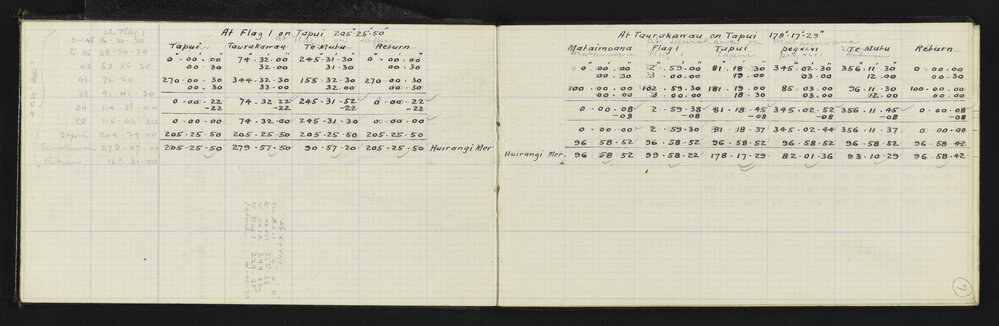 at Flag 1
on 46 16. 30. 30
to 46 39. 04. 20
43 63. 56. 30
42 72. 24
38 91. 41. 30
34 114. 51. 00
115. 03. 30
Tapui 204. 34. 00
279. 07. 00
Return 16. 31. 00
At Flag 1 on Tapui 205°25'50"
Tapui Taurakawau Te Mutu Return
0° 00' 00" 74° 32' 00" 245° 31' 30" 0° 00' 00"
00. 30 32. 00 31. 30 00. 30
270. 00. 30 344. 32. 30 155. 32. 30 270. 00. 30
00. 30 33. 00 32. 00 00. 30
0. 00. 22 74. 32. 22 245. 31. 52 0. 00. 22
-22 -22 -22 -22
0. 00. 00 74. 32. 00 245. 31. 30 0. 00. 00
205. 25. 50 205. 25. 50 205. 25. 50 205. 25. 50
205. 25. 50 279. 57. 50 90. 57. 20 205. 25. 50 Huirangi Mer
At Taurakawau on Tapui 178°.17'.29"
Mataimoana Flag 1 Tapui peg xivi Te Mutu Return
0° 00' 00" 2° 59' 00" 81° 18' 30" 345° 02' 30" 356° 11' 30" 0. 00. 00
00. 30 3. 00. 00 19. 00 03. 00 12. 00 00. 00
100. 00. 00 102. 59. 30 181. 19. 00 85. 03. 00 96. 11. 30 100. 00. 00
00. 30 3. 00. 00 18. 30 03. 00 12. 00 00. 00
0. 00. 08 2. 59. 38 81. 18. 45 345. 02. 52 356. 11. 45 0. 00. 08
-08 -08 -08 -08 -08 -08
0. 00. 00 2. 59. 30 81. 18. 37 345. 02. 44 356. 11. 37 0. 00. 00
96. 58. 52 96. 58. 52 96. 58. 52 96. 58. 52 96. 58. 52 96. 58. 42
Huirangi Mer. 96. 58. 52 99. 58. 22 178. 17. 29 82. 01. 36 93. 10. 29 96. 58. 42
7